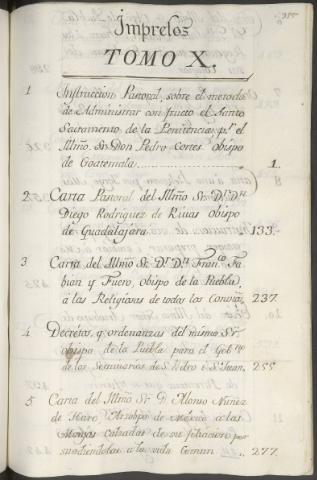 315
Impresos
TOMO X.
1 Instruccion Pastoral, sobre el metodo
de Administrar con fructo el Santo
Sacramento de la Penitencia, pr. el
Illmo. Sr. Don Pedro Cortes obispo
de Goatemala 1.
2 Carta Pastoral del Illmo Sr. Dr. Dn.
Diego Rodriguez de Rivas obispo
de Guadalajara 133.
3 Carta del Illmo Sr. Dr. Dn. Franco. Fa-
bian y Fuero, Obispo de la Puebla,
á las Religiosas de todos los Convtos. 237.
4 Decretos, y ordenanzas del mismo Sr.
obispo de la Puebla para el Gobno.
de los Seminarios de S. Pedro é Sn. Juan. 255
5 Carta del Illmo Sr. D. Alonso Nuñez
de Haro Arzobpo de Mexico a las
Monjas calzadas de su filiacion per
suadiendolas a la vida Comun 277.